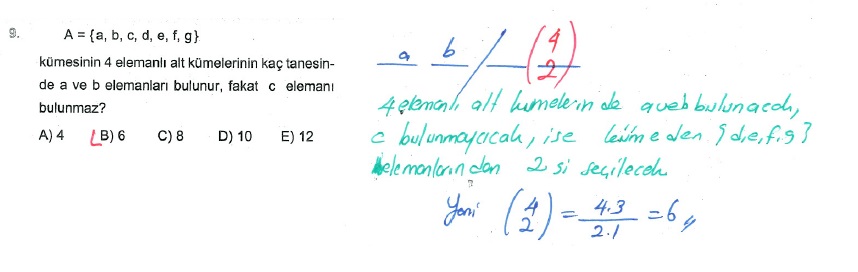 9. A = {a, b, c, d, e, f, g}
kümesinin 4 elemanlı alt kümelerinin kaç tanesin-
de a ve b elemanları bulunur, fakat c elemanı
bulunmaz?
A) 4 B) 6 C) 8 D) 10 E) 12
a b (4 2)
4 elemanlı alt kümelerin de a ve b bulunacak,
c bulunmayacak, ise kümeden {d,e,f,g}
elemanlarından 2 si seçilecek
Yani (4 2) = 4.3 / 2.1 = 6